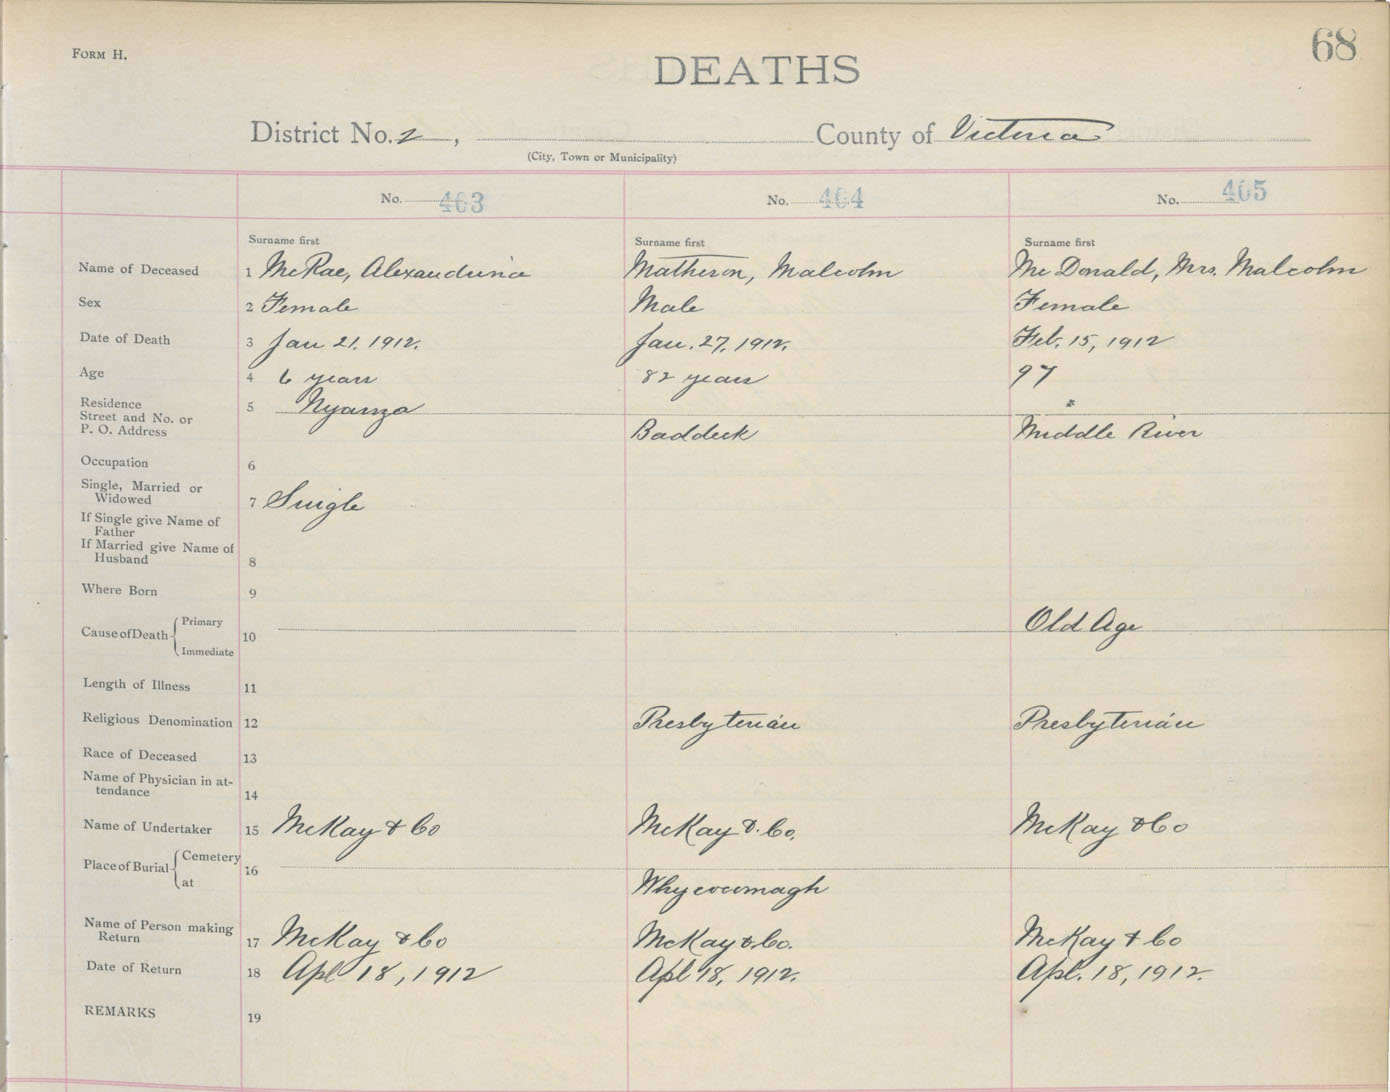 FORM H.
68
DEATHS
District No. 2, County of Victoria
(City, Town or Municipality)
No. 463 No. 464 No. 465
Surname first Surname first Surname first
Name of Deceased 1 McRae, Alexandrina Matheson, Malcolm McDonald, Mrs. Malcolm
Sex 2 Female Male Female
Date of Death 3 Jan 21, 1912. Jan. 27, 1912. Feb. 15, 1912
Age 4 6 years 82 years 97
Residence 5 Nyanza
Street and No. or
P. O. Address Baddeck Middle River
Occupation 6
Single, Married or
Widowed 7 Single
If Single give Name of
Father
If Married give Name of
Husband 8
Where Born 9
Primary Old Age
Cause of Death 10
Immediate
Length of Illness 11
Religious Denomination 12 Presbyterian Presbyterian
Race of Deceased 13
Name of Physician in at-
tendance 14
Name of Undertaker 15 McKay & Co McKay & Co. McKay & Co
Cemetery
Place of Burial 16
at Whycocomagh
Name of Person making
Return 17 McKay & Co McKay & Co. McKay & Co
Date of Return 18 Apl 18, 1912 Apl 18, 1912. Apl. 18, 1912.
REMARKS 19